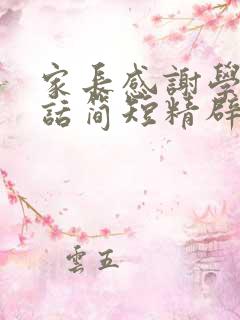 家長感謝學
話簡短精辟
雲五